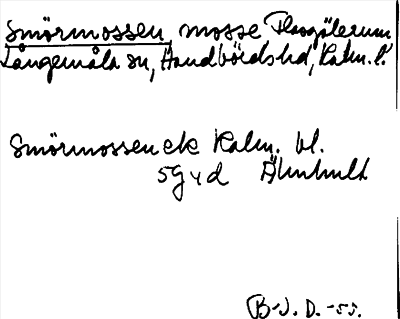 Smörmossen, mosse Flaxgölerum
Långemåla sn, Handbörds hd, Kalm. l.
Smörmossen ek Kalm. bl.
5g y d Älmhult
B-J. D. -55.